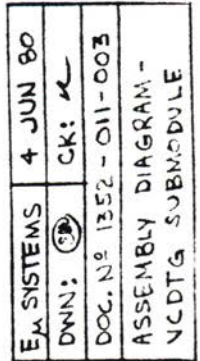 EM SYSTEMS 4 JUN 80
DWN: CK:
DOC. Nº 1352-011-003
ASSEMBLY DIAGRAM-
VCDTG SUBMODULE